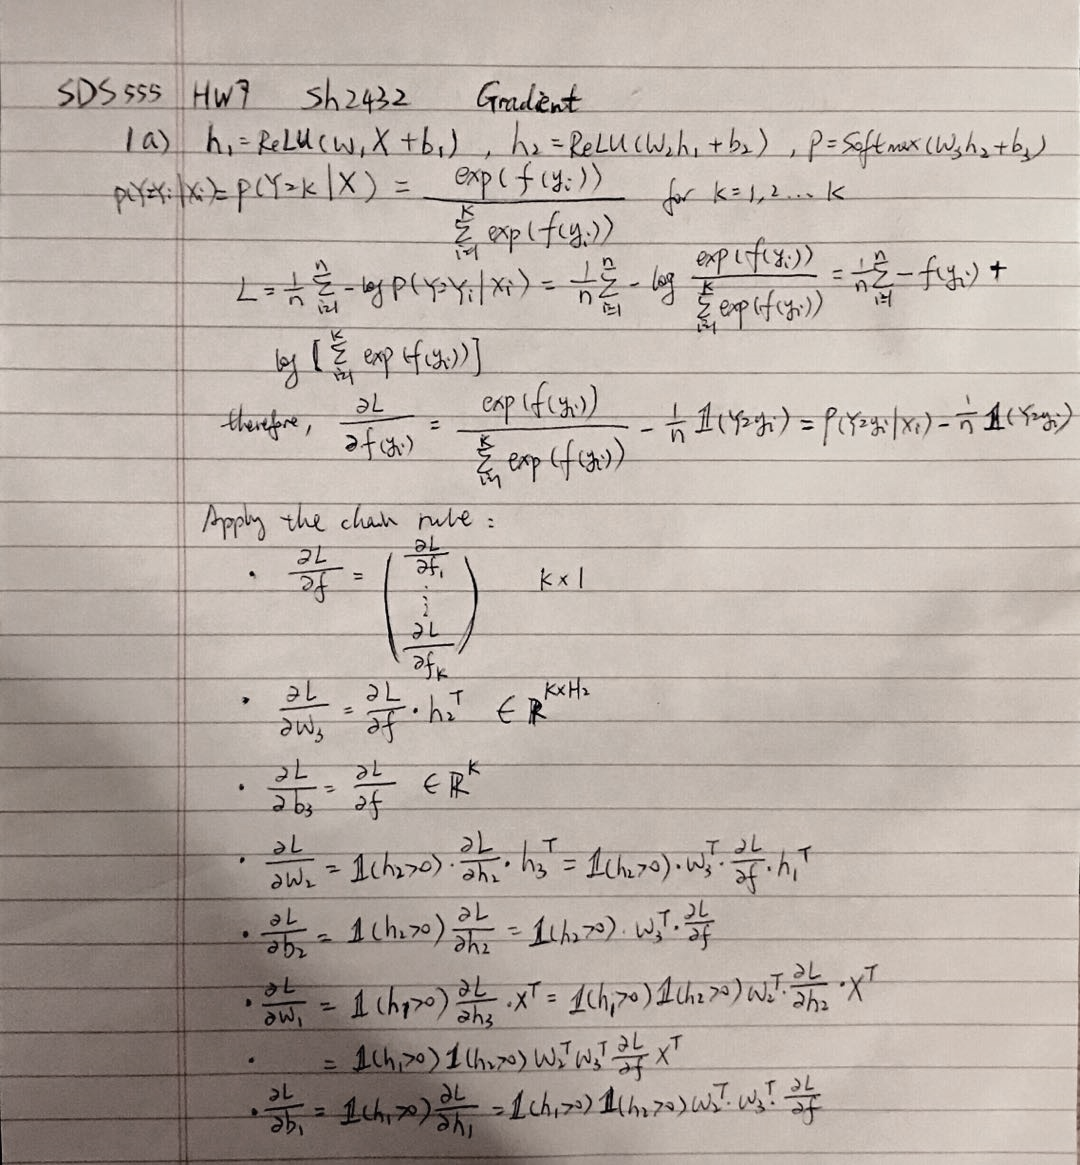 SDS 555 HW7 Sh2432 Gradient
1a) h₁=ReLU(W₁X+b₁), h₂=ReLU(W₂h₁+b₂), P=Softmax(W₃h₂+b₃)
p(Y=Yᵢ|Xᵢ)=p(Y=k|X) = exp(f(yᵢ)) / ∑ᵢ₌₁ᴷ exp(f(yᵢ)) for k=1,2...K
L = 1/n ∑ᵢ₌₁ⁿ -log p(Y=Yᵢ|Xᵢ) = 1/n ∑ᵢ₌₁ⁿ -log exp(f(yᵢ)) / ∑ᵢ₌₁ᴷ exp(f(yᵢ)) = 1/n ∑ᵢ₌₁ⁿ -f(yᵢ) +
log [∑ᵢ₌₁ᴷ exp(f(yᵢ))]
therefore, ∂L/∂f(yᵢ) = exp(f(yᵢ)) / ∑ᵢ₌₁ᴷ exp(f(yᵢ)) - 1/n 𝟙(Y=yᵢ) = P(Y=yᵢ|Xᵢ) - 1/n 𝟙(Y=yᵢ)
Apply the chain rule:
· ∂L/∂f = ( ∂L/∂f₁ ⋮ ∂L/∂f_K ) K×1
· ∂L/∂W₃ = ∂L/∂f · h₂ᵀ ∈ ℝ^(K×H₂)
· ∂L/∂b₃ = ∂L/∂f ∈ ℝ^K
· ∂L/∂W₂ = 𝟙(h₂>0) · ∂L/∂h₂ · h₃ᵀ = 𝟙(h₂>0) · W₃ᵀ · ∂L/∂f · h₁ᵀ
· ∂L/∂b₂ = 𝟙(h₂>0) ∂L/∂h₂ = 𝟙(h₂>0) · W₃ᵀ · ∂L/∂f
· ∂L/∂W₁ = 𝟙(h₁>0) ∂L/∂h₃ · Xᵀ = 𝟙(h₁>0) 𝟙(h₂>0) W₂ᵀ · ∂L/∂h₂ · Xᵀ
· = 𝟙(h₁>0) 𝟙(h₂>0) W₂ᵀ W₃ᵀ ∂L/∂f Xᵀ
· ∂L/∂b₁ = 𝟙(h₁>0) ∂L/∂h₁ = 𝟙(h₁>0) 𝟙(h₂>0) W₂ᵀ · W₃ᵀ · ∂L/∂f